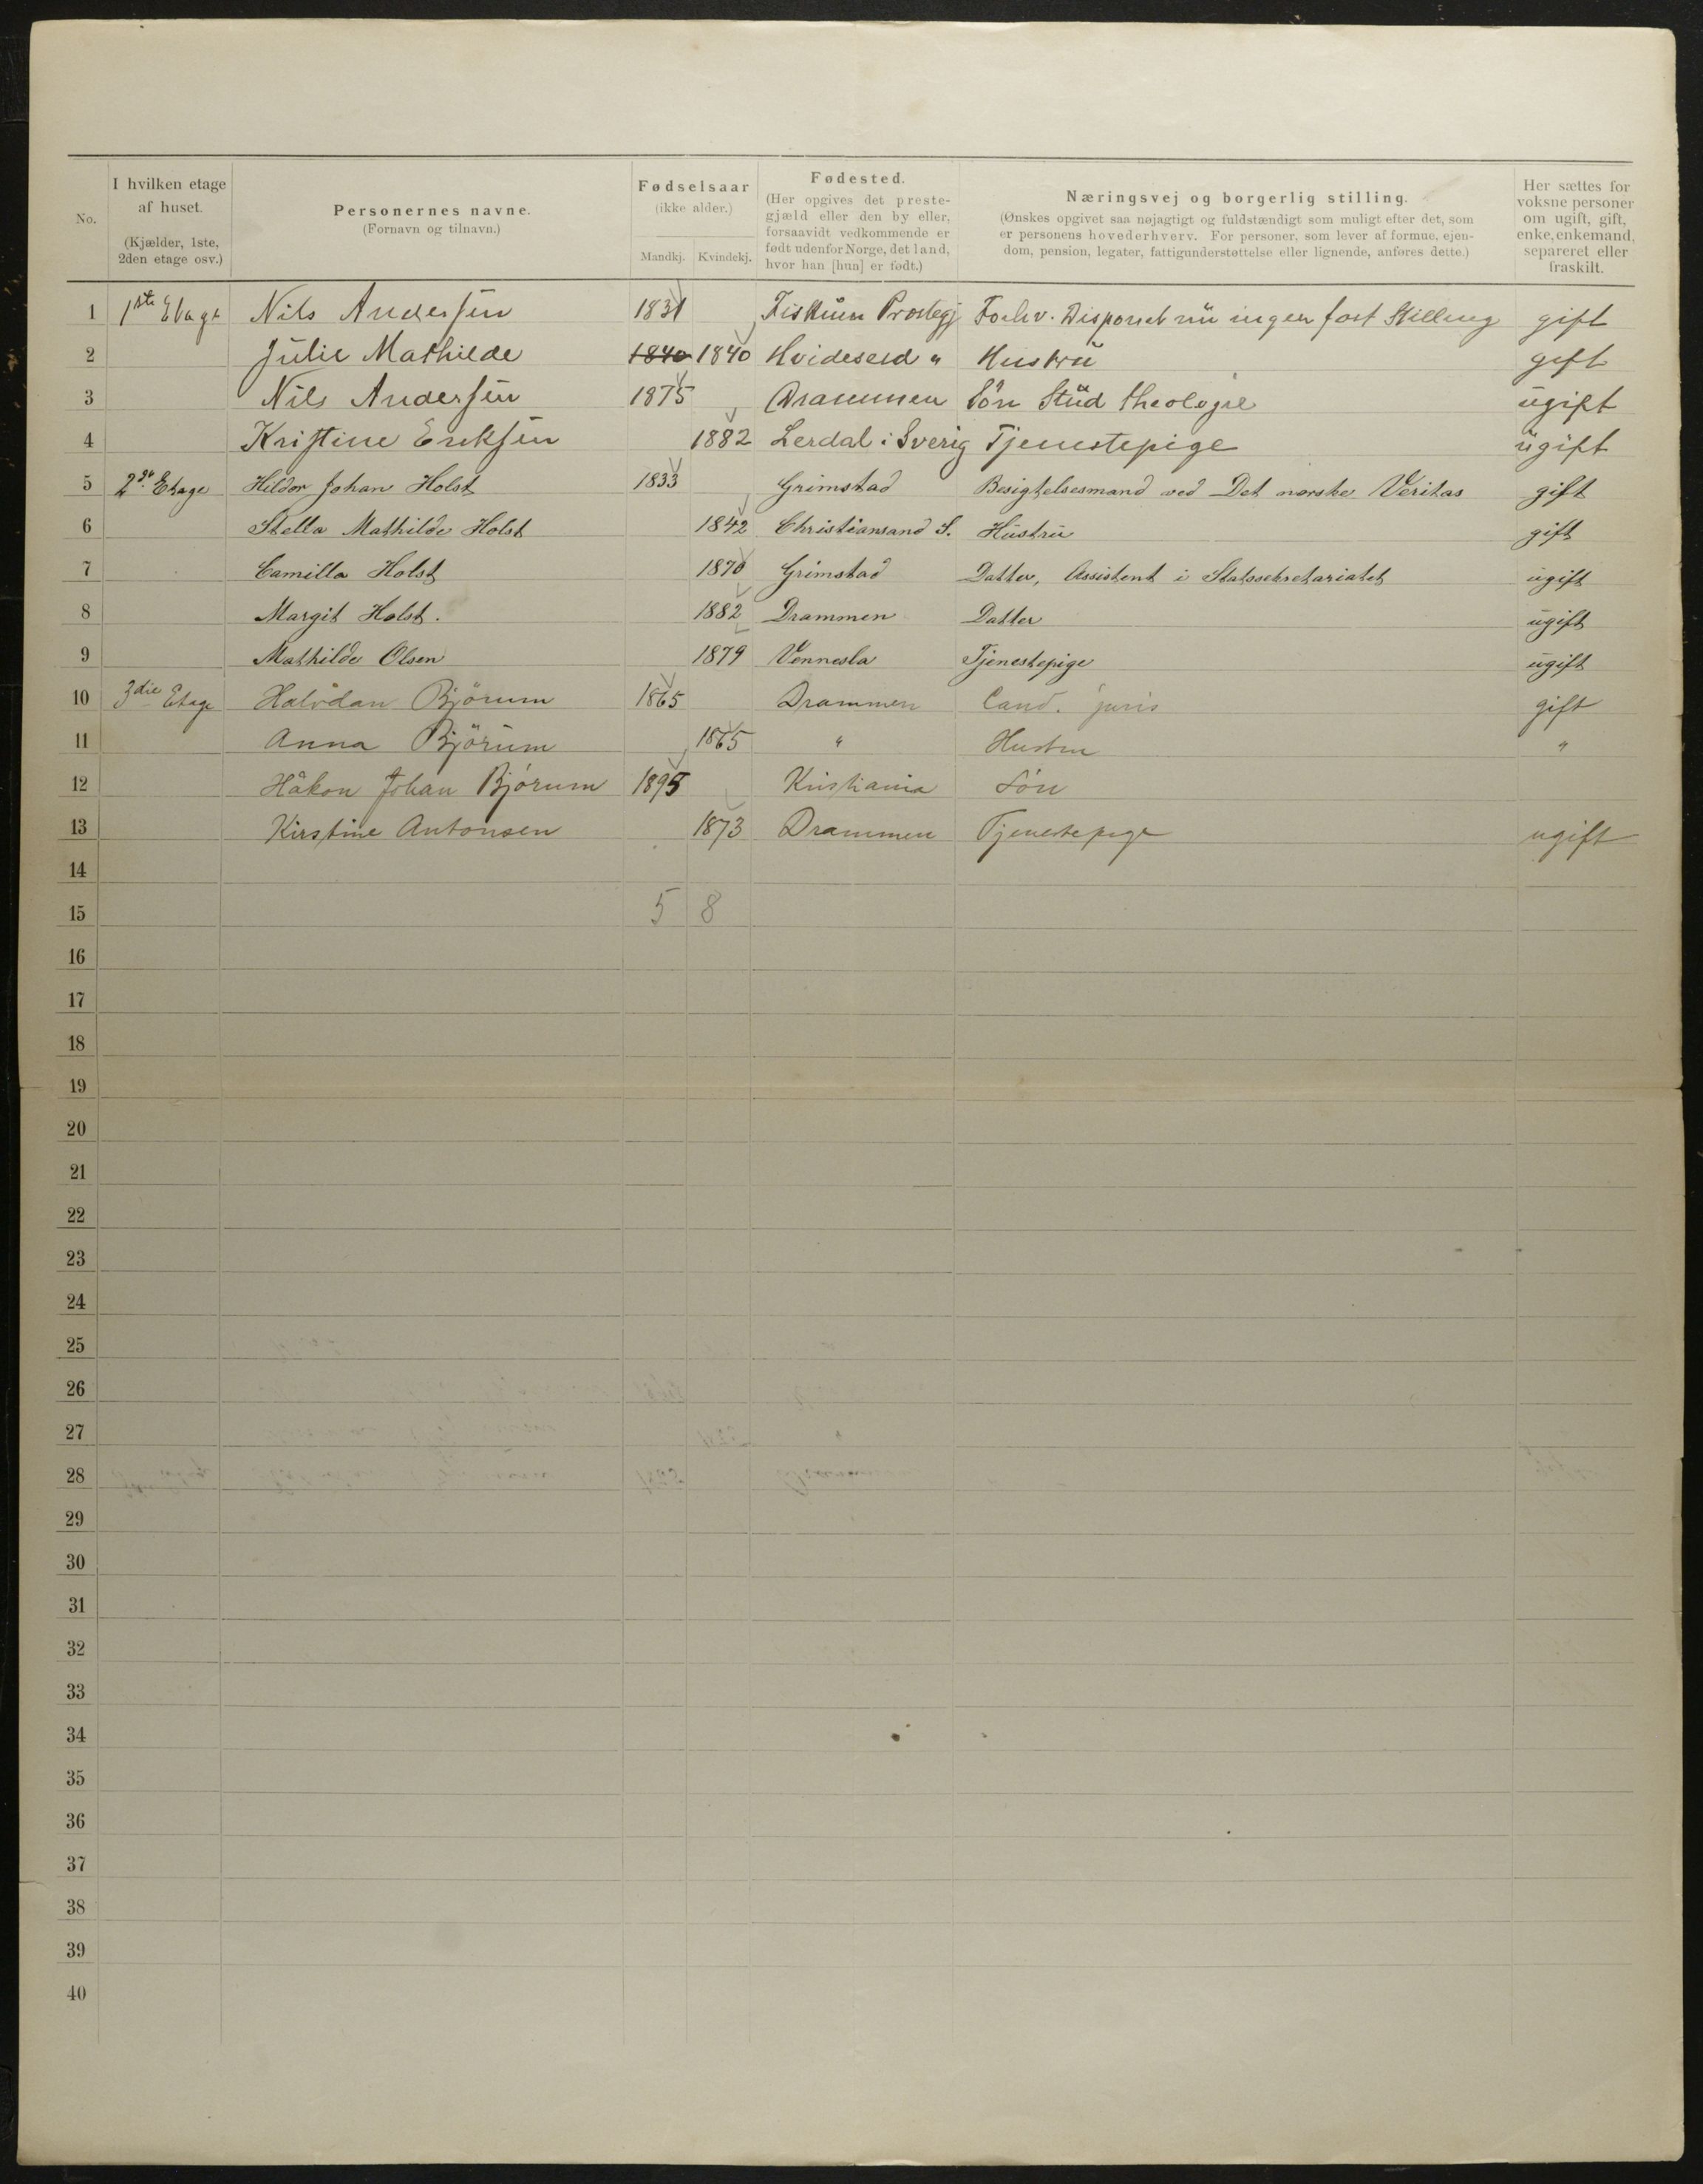 No.
I hvilken etage af huset. (Kjælder, 1ste, 2den etage osv.)
Personernes navne. (Fornavn og tilnavn.)
Fødselsaar (ikke alder.) Mandkj. Kvindekj.
Fødested. (Her opgives det prestegjæld eller den by eller, forsaavidt vedkommende er født udenfor Norge, det land, hvor han [hun] er født.)
Næringsvej og borgerlig stilling. (Ønskes opgivet saa nøjagtigt og fuldstændigt som muligt efter det, som er personens hovederhverv. For personer, som lever af formue, ejendom, pension, legater, fattigunderstøttelse eller lignende, anføres dette.)
Her sættes for voksne personer om ugift, gift, enke, enkemand, separeret eller fraskilt.
1 1ste Etage Nils Andersen 1831 Fiskum Prestegj Forhv. Disponent nu ingen fast Stilling gift
2 Julie Mathilde 1840 1840 Hvideseid " Hustru gift
3 Nils Andersen 1875 Drammen Sön Stud theologie ugift
4 Kristine Eriksen 1882 Lerdal i Sverig Tjenestepige ugift
5 2den Etage Hildor Johan Holst 1833 Grimstad Besigtelsesmand ved Det norske Veritas gift
6 Stella Mathilde Holst 1842 Christiansand S. Hustru gift
7 Camilla Holst 1870 Grimstad Datter, Assistent i Statssekretariatet ugift
8 Margit Holst. 1882 Drammen Datter ugift
9 Mathilde Olsen 1879 Vennesla Tjenestepige ugift
10 3die Etage Halvdan Björum 1865 Drammen Cand. juris gift
11 Anna Björum 1865 " Hustru "
12 Håkon Johan Björum 1895 Kristiania Sön
13 Kirstine Antonsen 1873 Drammen Tjenestepige ugift
14
15 5 8
16
17
18
19
20
21
22
23
24
25
26
27
28
29
30
31
32
33
34
35
36
37
38
39
40